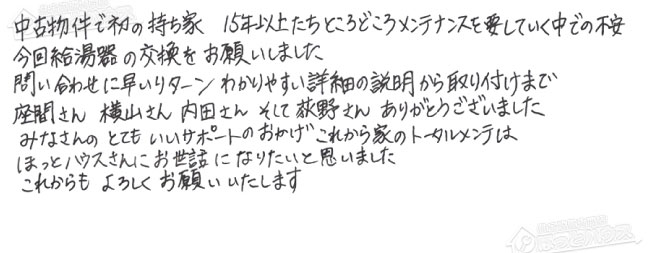 中古物件で初の持ち家　15年以上たちところどころメンテナンスを要していく中での不安
今回給湯器の交換をお願いしました
問い合わせに早いリターン わかりやすい詳細の説明から取り付けまで
座間さん 横山さん 内田さん そして荻野さん ありがとうございました
みなさんの とても いいサポートのおかげ これから家のトータルメンテは
ほっとハウスさんにお世話になりたいと思いました
これからも よろしく お願いいたします